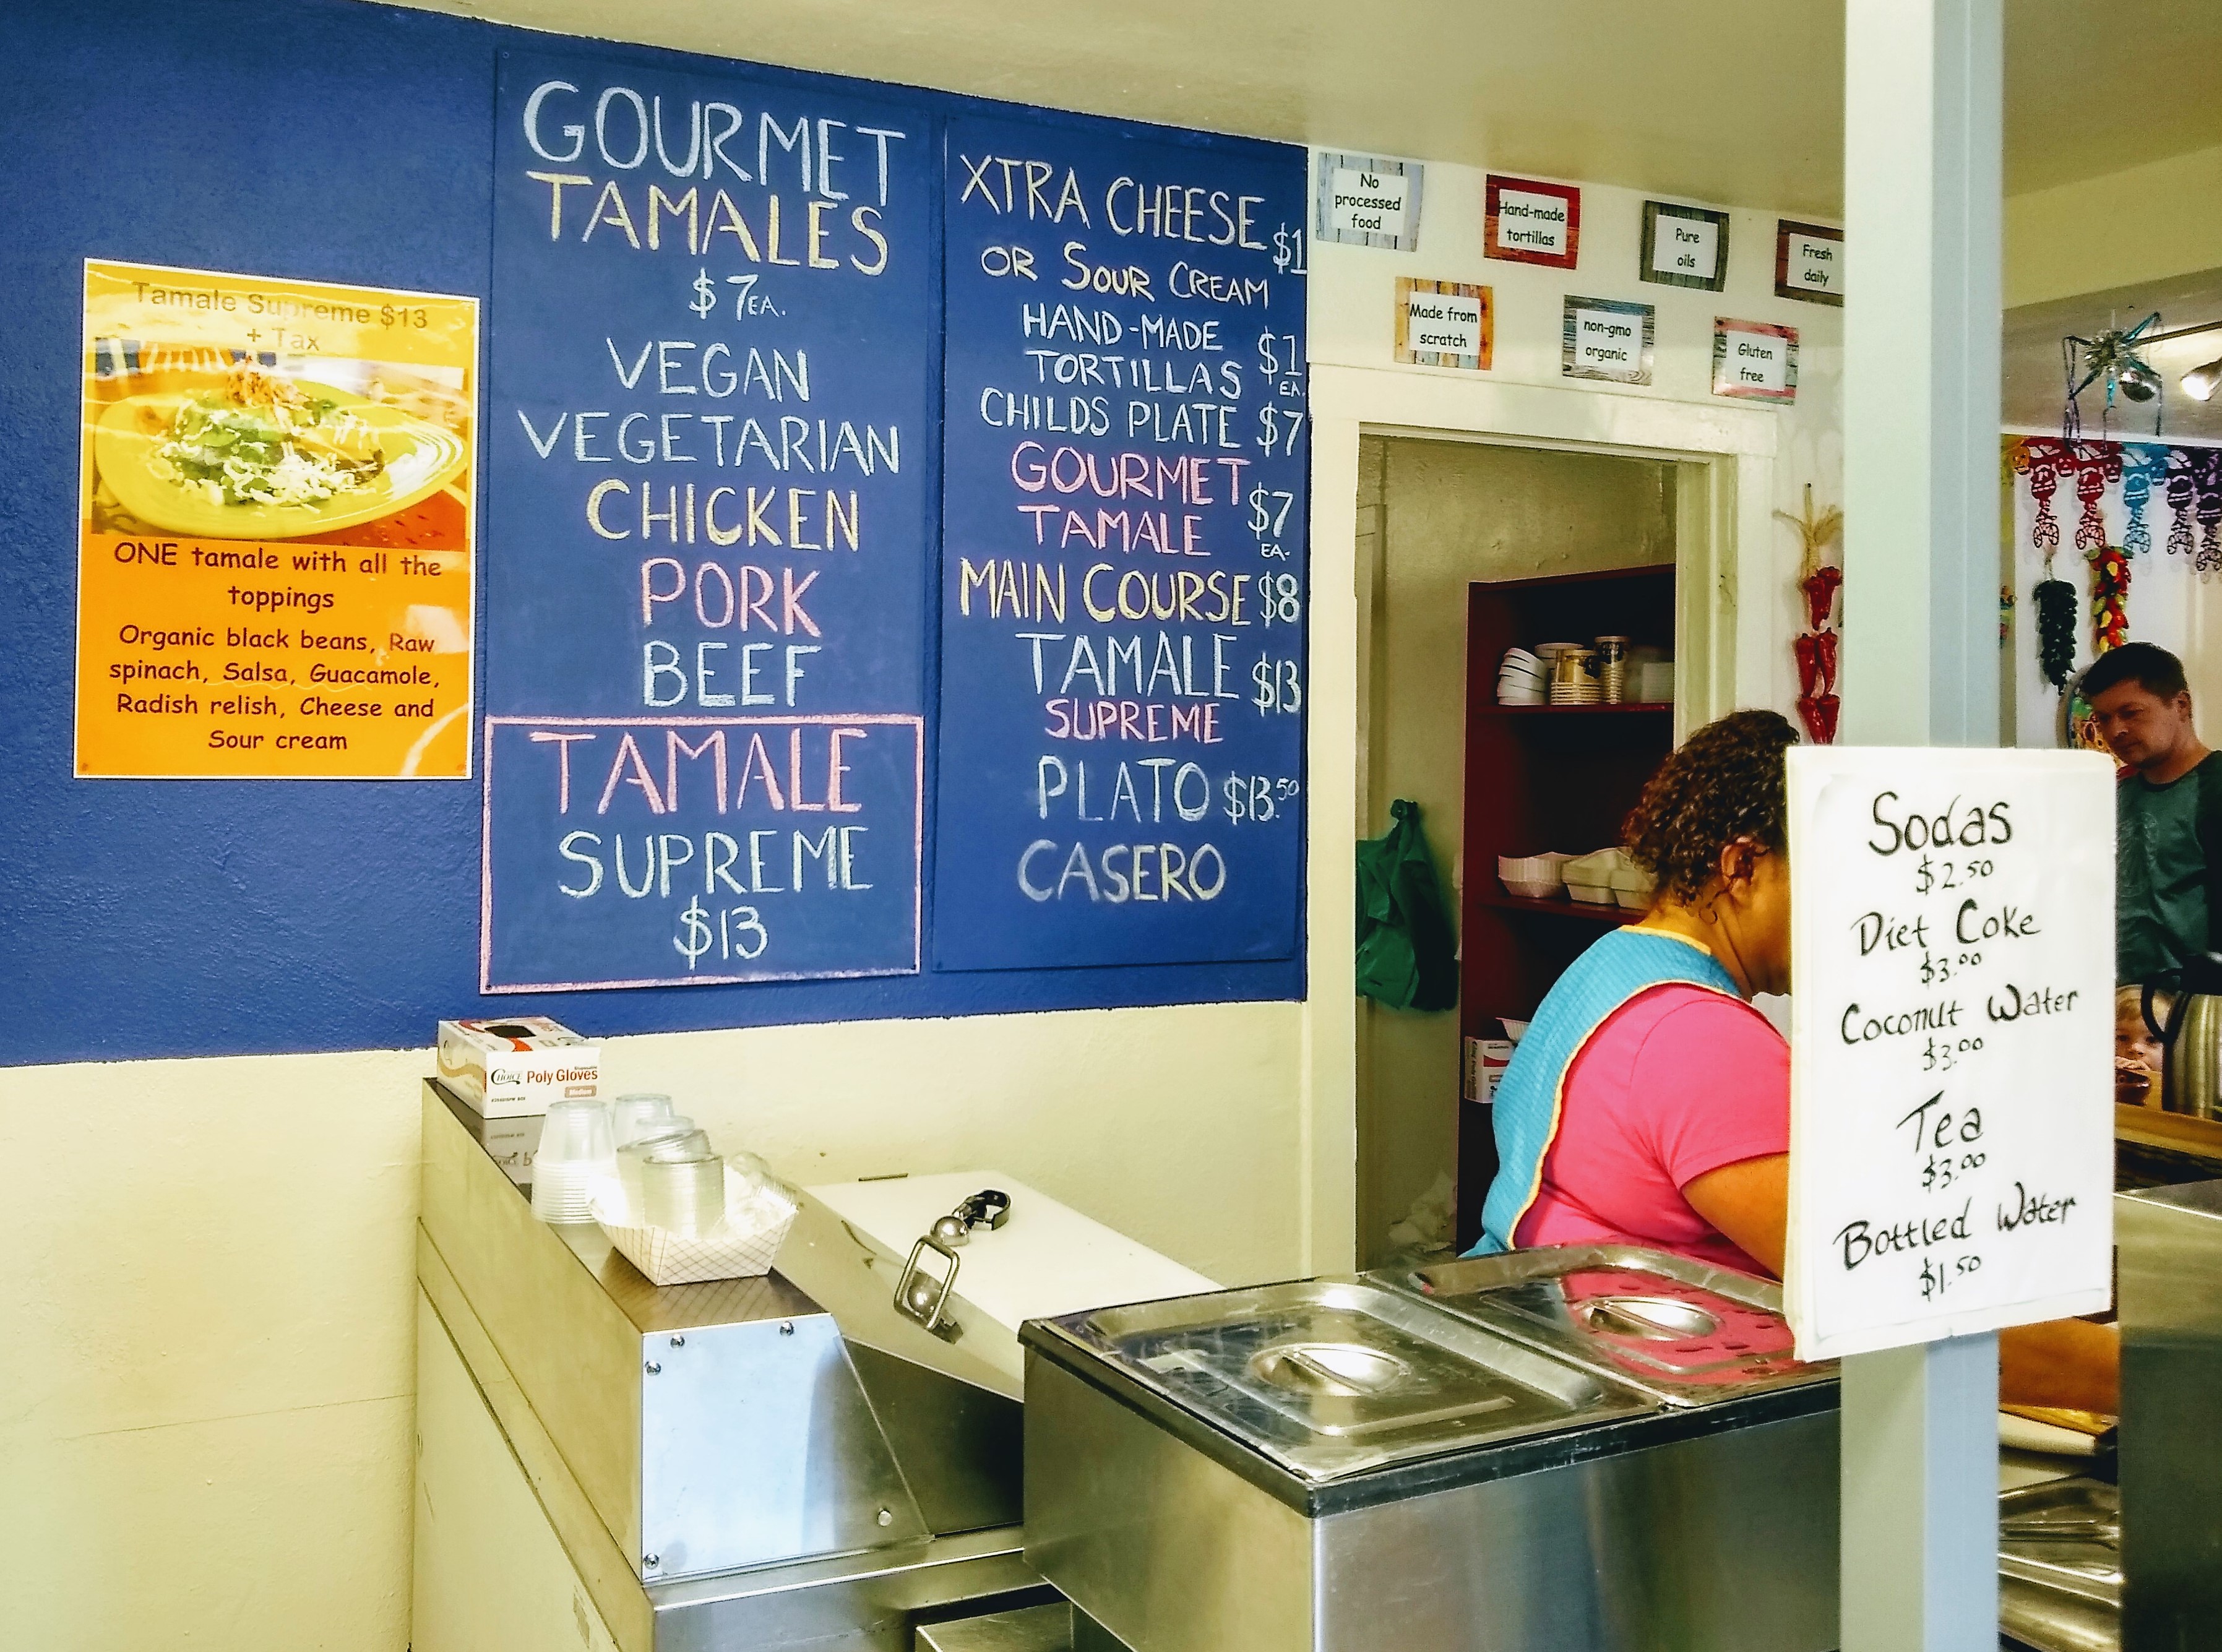 Tamale Supreme $13
+ Tax
ONE tamale with all the
toppings
Organic black beans, Raw
spinach, Salsa, Guacamole,
Radish relish, Cheese and
Sour cream
GOURMET
TAMALES
$7EA.
VEGAN
VEGETARIAN
CHICKEN
PORK
BEEF
TAMALE
SUPREME
$13
XTRA CHEESE $1
OR SOUR CREAM
HAND-MADE
TORTILLAS $1 EA.
CHILDS PLATE $7
GOURMET
TAMALE $7 EA.
MAIN COURSE $8
TAMALE $13
SUPREME
PLATO $13.50
CASERO
No
processed
food
Hand-made
tortillas
Pure
oils
Fresh
daily
Made from
scratch
non-gmo
organic
Gluten
free
Sodas
$2.50
Diet Coke
$3.00
Coconut Water
$3.00
Tea
$3.00
Bottled Water
$1.50
CHOICE Poly Gloves
Medium